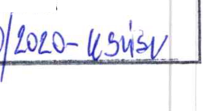 )/2020-KSÚSV